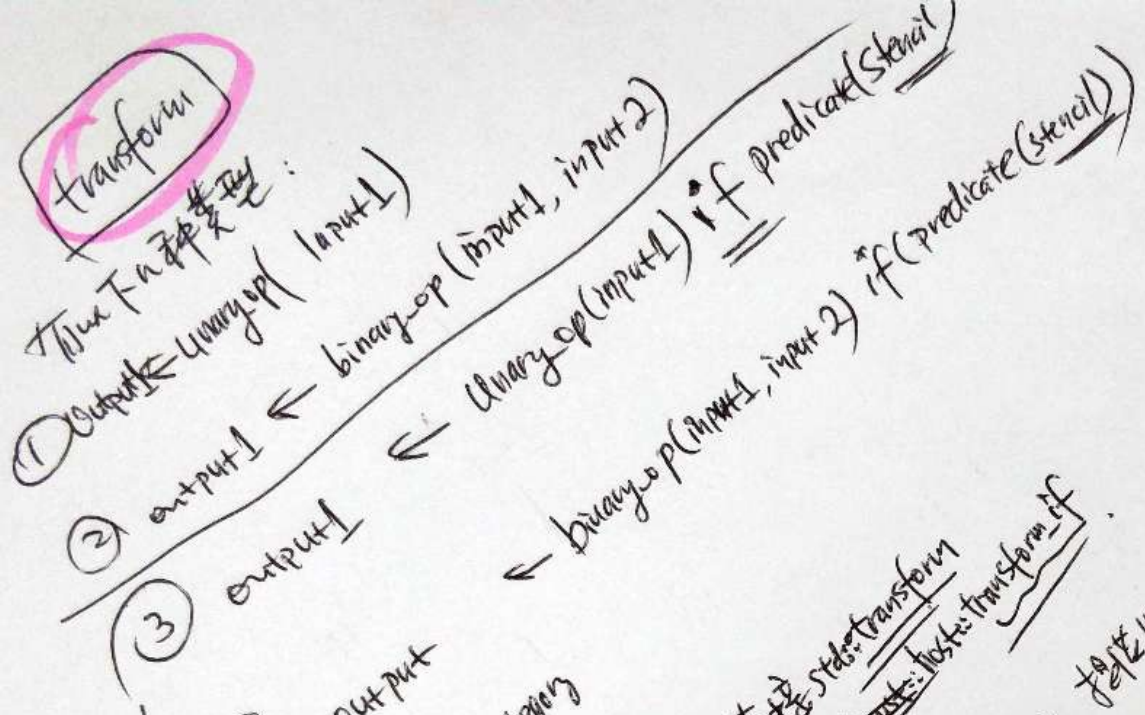 transform
有以下几种类型:
① output1 ← unary_op( input1)
② output1 ← binary_op (input1, input2)
③ output1 ← Unary_op(input1) if predicate(stencil)
← binary_op(input1, input2) if(predicate(stencil))
output
std::transform
host::transform_if